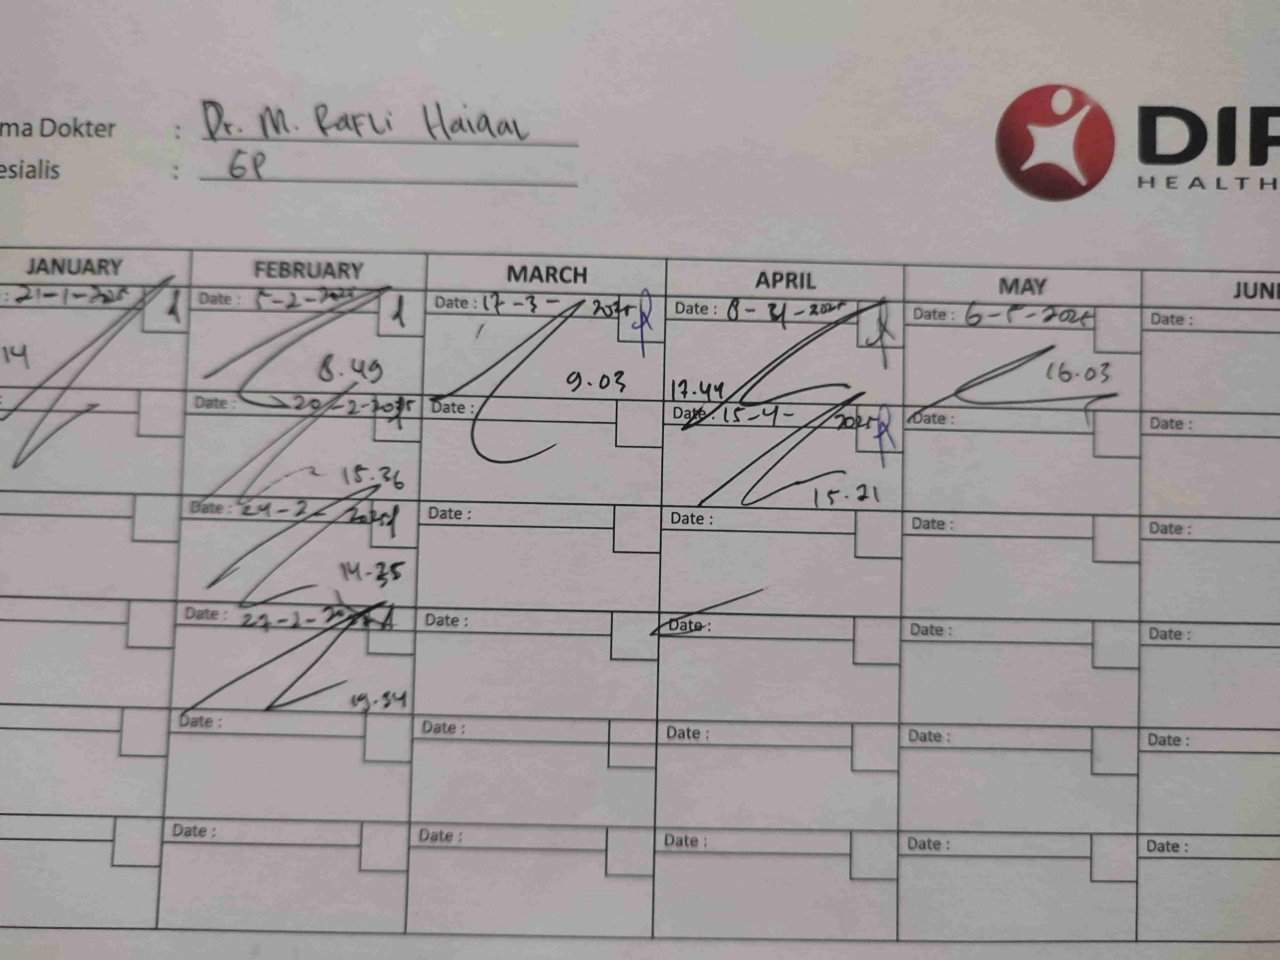 ma Dokter : Dr. M. Rafli Haiqal
esialis : GP
DIP
HEALTH
JANUARY FEBRUARY MARCH APRIL MAY JUNE
: 21-1-2025 Date : 5-2-2025 Date : 17-3-2025 Date : 8-4-2025 Date : 6-5-2025 Date :
14 8.49 9.03 17.44 16.03
Date : 20-2-2025 Date : Date : 15-4-2025 Date : Date :
15.36 15.21
Date : 24-2-2025 Date : Date : Date : Date :
14.35
Date : 27-2-2025 Date : Date : Date : Date :
19.34
Date : Date : Date : Date : Date :
Date : Date : Date : Date : Date :